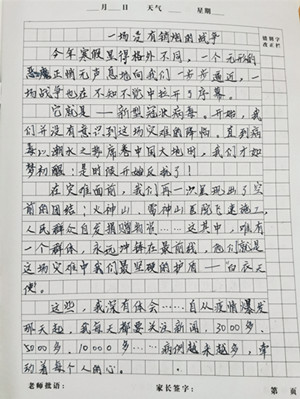 月 日 天气 星期
错别字
改正栏
一场没有销烟的战争
今年寒假显得格外不同,一个无形的
恶魔正悄无声息地向我们一步步逼近,一
场战争也在不知不觉中拉开了序幕。
它就是——新型冠状病毒。开始,我
们并没有意识到这场灾难的降临。直到病
毒以潮水之势席卷中国大地时,我们才如
梦初醒!是时候开始反抗了!
在灾难面前,我们再一次呈现出了空
前的团结:火神山、雷神山医院飞速施工,
人民群众自发捐赠物资……这其中,唯有
一个群体,永远冲锋在最前线,他们就是
这场灾难中我们最坚硬的护盾——“白衣天
使。
这些,我深有体会……自从疫情爆发
那天起,我每天都要关注新闻,3000多、
5000多、10000多……病例越来越多,牵
动着每个人的心。
老师批语: 家长签字: 第 页